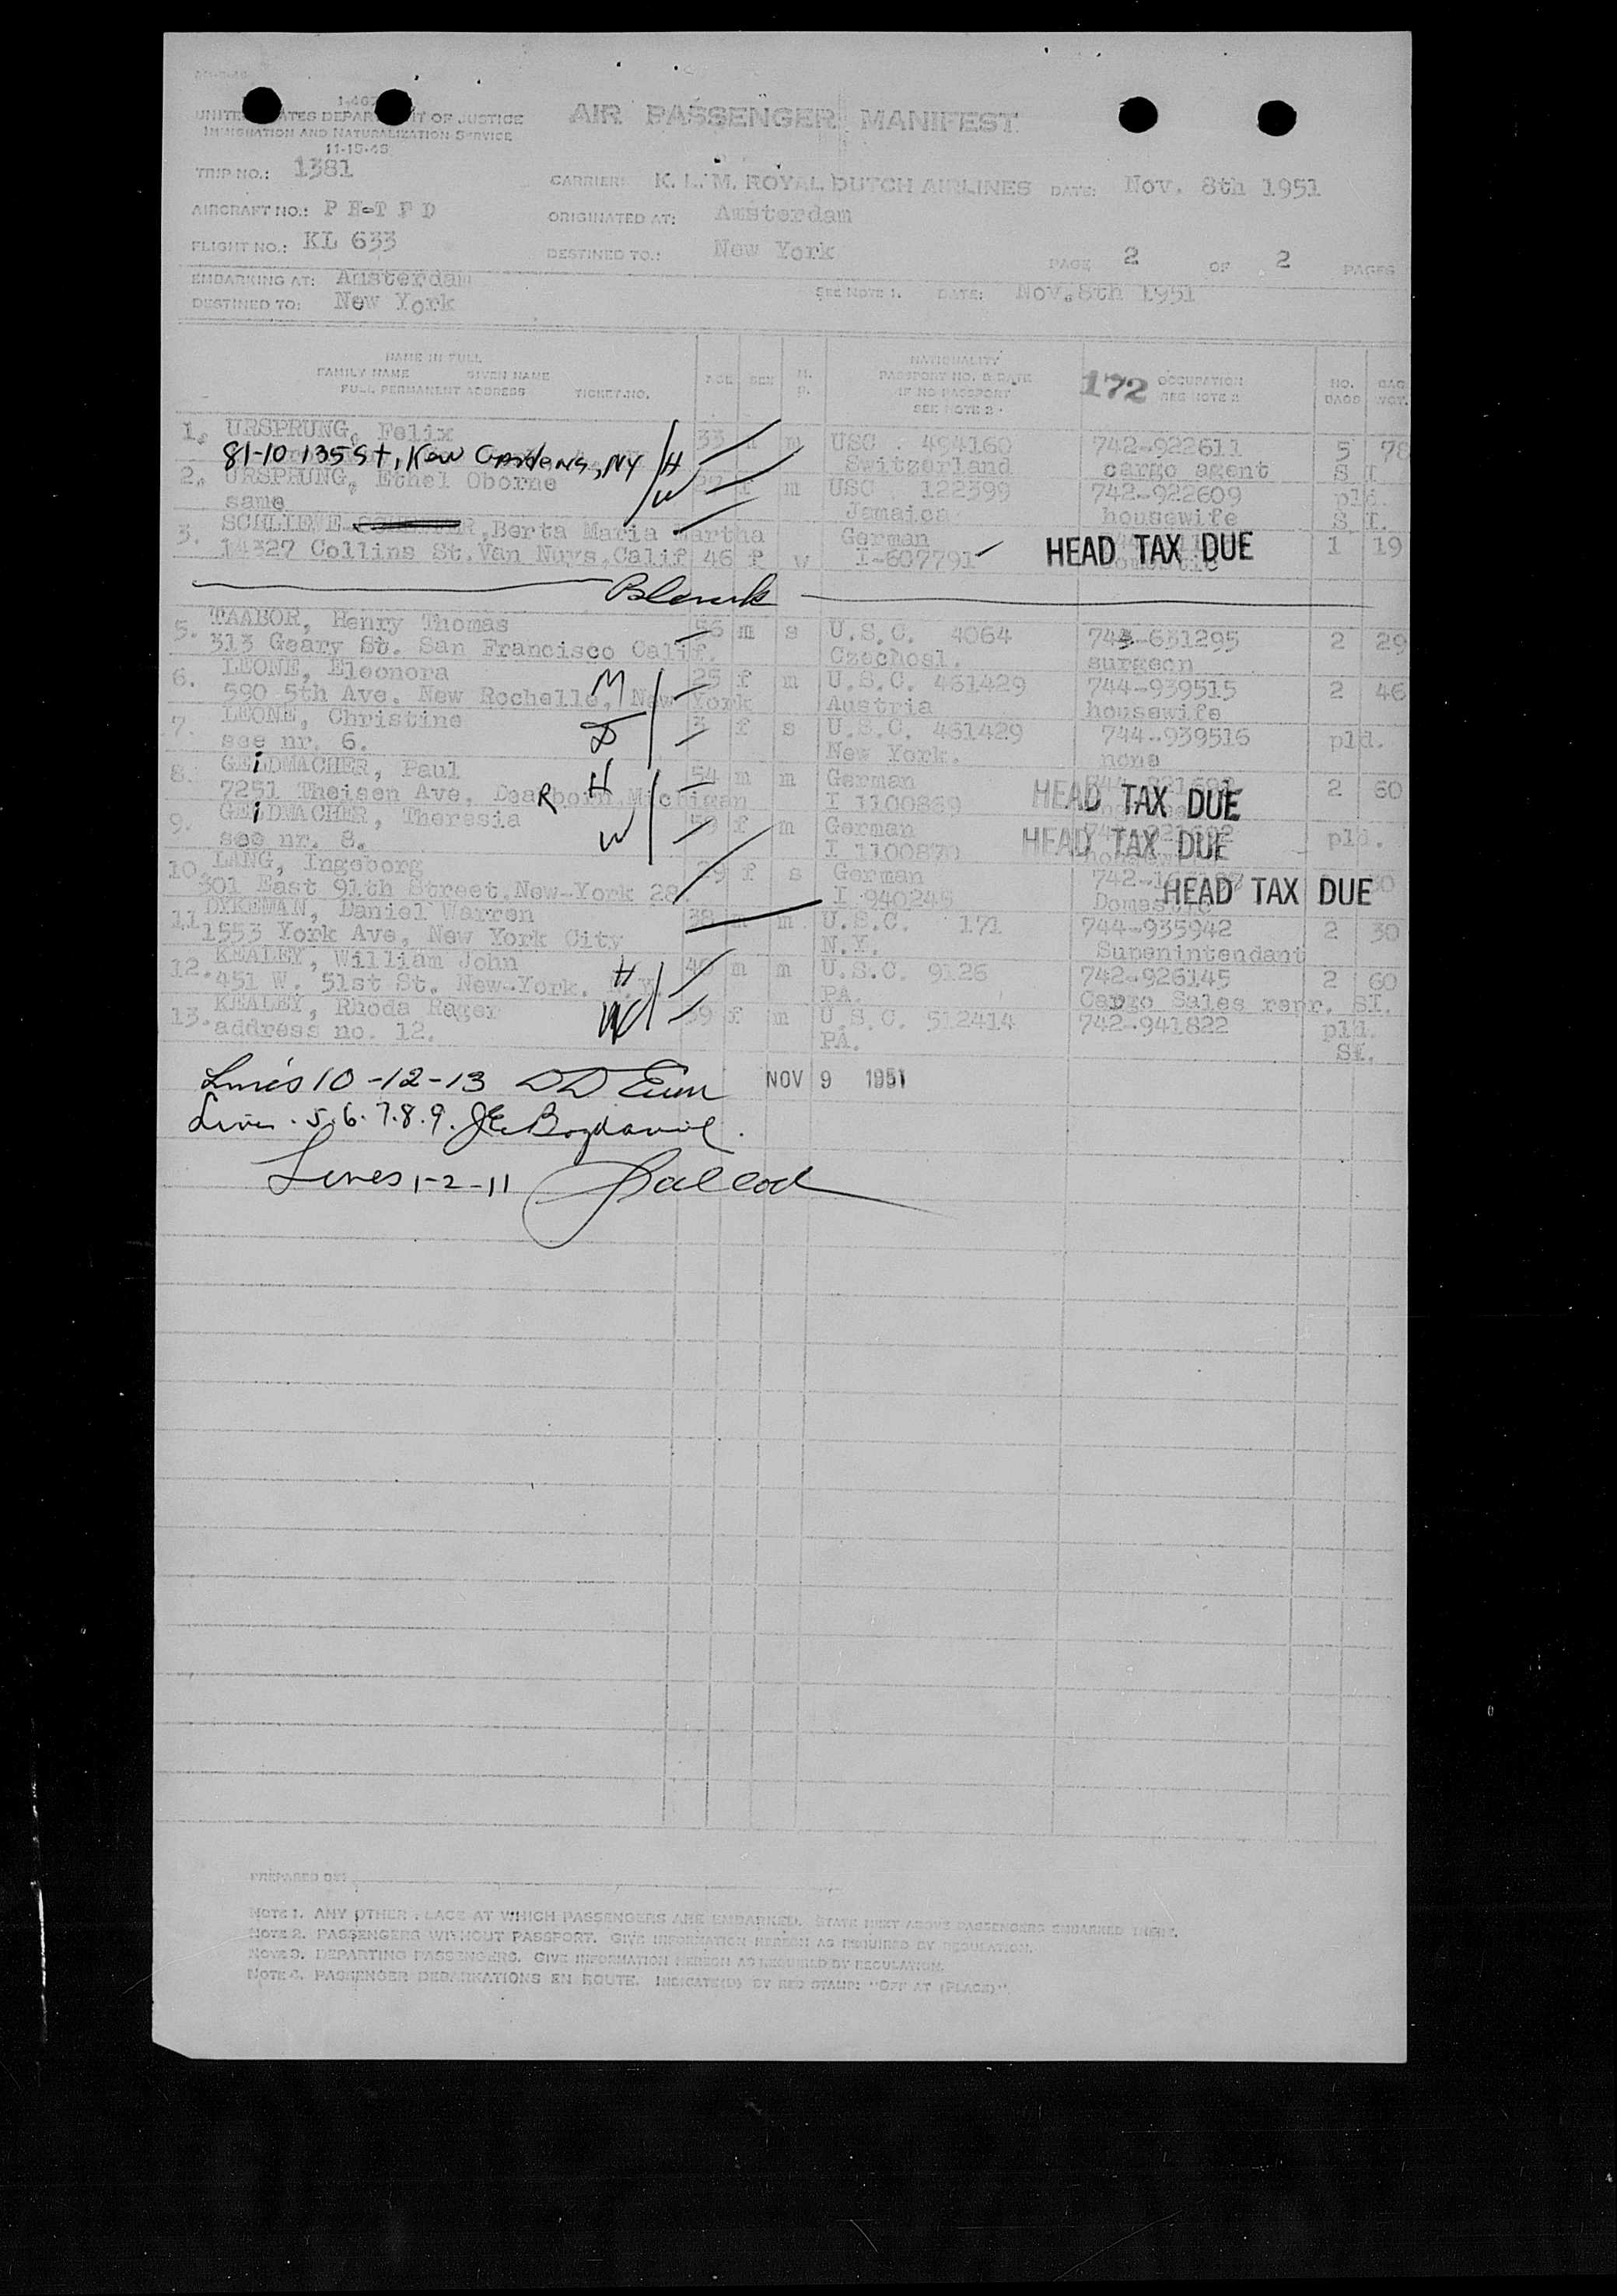 UNITED STATES DEPARTMENT OF JUSTICE
IMMIGRATION AND NATURALIZATION SERVICE
11-15-45
AIR PASSENGER MANIFEST
TRIP NO.: 1381
CARRIER: K. L. M. ROYAL DUTCH AIRLINES DATE: Nov. 8th 1951
AIRCRAFT NO.: P H-T F D
ORIGINATED AT: Amsterdam
FLIGHT NO.: KL 633
DESTINED TO.: New York
PAGE 2 OF 2 PAGES
EMBARKING AT: Amsterdam
SEE NOTE 1. DATE: Nov. 8th 1951
DESTINED TO: New York
NAME IN FULL
FAMILY NAME GIVEN NAME
FULL PERMANENT ADDRESS TICKET NO.
AGE SEX M. S.
NATIONALITY
PASSPORT NO. & DATE
IF NO PASSPORT
SEE NOTE 2
172 OCCUPATION
SEE NOTE 2
NO. BAGS
BAG. WGT.
1. URSPRUNG, Felix 33 m m USC 494160 742-922611 5 78
81-10 135 St, Kew Gardens, NY H Switzerland cargo agent S I
2. URSPRUNG, Ethel Oborne f m USC 122399 742-922609 pld.
same W Jamaica housewife S I.
3. SCHLIEVE, Berta Maria Martha German
14327 Collins St. Van Nuys, Calif 46 f w I-607791 HEAD TAX DUE 1 19
Blank
5. TAABOR, Henry Thomas 56 m s U.S.C. 4064 743-631295 2 29
313 Geary St. San Francisco Calif. Czechosl. surgeon
6. LEONE, Eleonora M 25 f m U.S.C. 461429 744-939515 2 46
590 5th Ave. New Rochelle, New York Austria housewife
7. LEONE, Christine D 3 f s U.S.C. 461429 744-939516 pld.
see nr. 6. New York. none
8. GEIDMACHER, Paul H 54 m m German 2 60
7251 Theisen Ave, Dearborn, Michigan R I 1100869 HEAD TAX DUE
9. GEIDMACHER, Theresia W 59 f m German pld.
see nr. 8. I 1100870 HEAD TAX DUE
10. LANG, Ingeborg 29 f s German
301 East 91th Street, New-York 28. I 940245 Domestic HEAD TAX DUE
11. DYKEMAN, Daniel Warren 38 m m U.S.C. 171 744-935942 2 30
1553 York Ave, New York City N.Y. Supenintendant
12. KEALEY, William John H 40 m m U.S.C. 9126 742-926145 2 60
451 W. 51st St. New-York. N.Y. PA. Cargo Sales repr. SI.
13. KEALEY, Rhoda Rager 39 f m U.S.C. 512414 742-941822 pld.
address no. 12. PA. SI.
Lines 10-12-13 NOV 9 1951
Lines 5.6.7.8.9.
Lines 1-2-11
PREPARED BY:
NOTE 1. ANY OTHER PLACE AT WHICH PASSENGERS ARE EMBARKED. STATE NEXT ABOVE PASSENGERS EMBARKED THERE.
NOTE 2. PASSENGERS WITHOUT PASSPORT. GIVE INFORMATION HEREON AS REQUIRED BY REGULATION.
NOTE 3. DEPARTING PASSENGERS. GIVE INFORMATION HEREON AS REQUIRED BY REGULATION.
NOTE 4. PASSENGER DEBARKATIONS EN ROUTE. INDICATE(D) BY RED STAMP: "OFF AT (PLACE)".